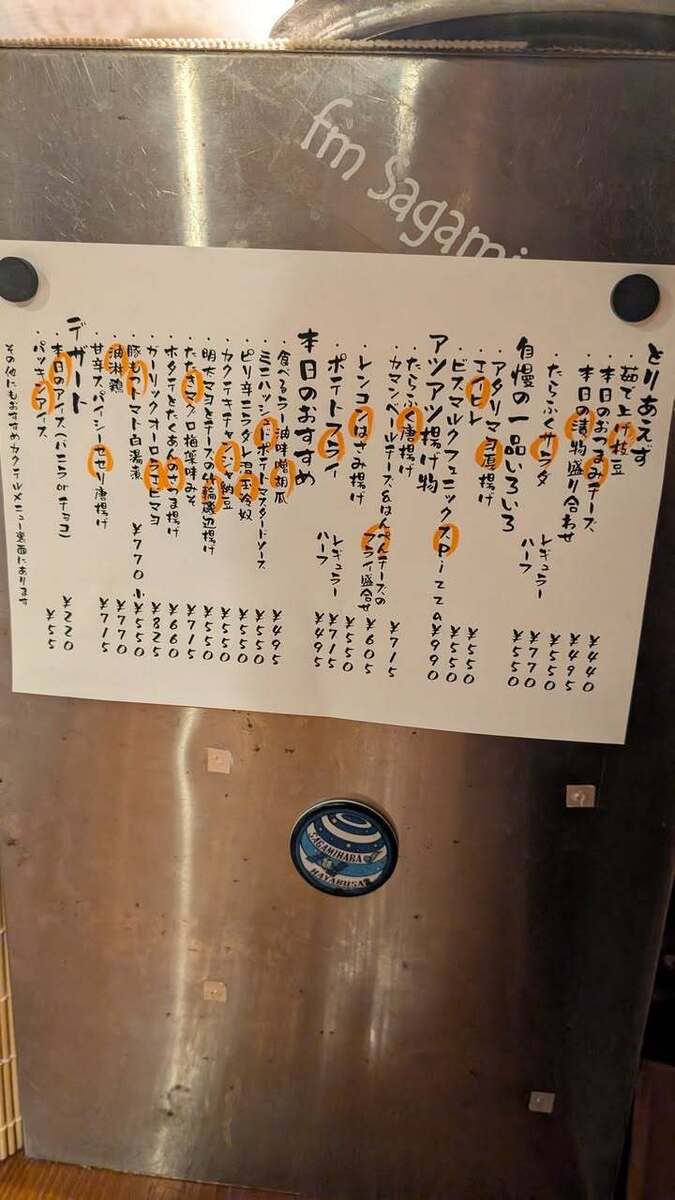 fm Sagami
とりあえず
・茹で上げ枝豆 ¥440
・本日のおつまみチーズ ¥495
・本日の漬物盛り合わせ ¥550
・たらふくサラダ レギュラー ¥770
ハーフ ¥550
自慢の一品いろいろ
・アタリマヨ唐揚げ ¥550
・エイヒレ ¥550
・ビスマルクフェニックスPizza ¥990
アツアツ揚げ物
・たらふく唐揚げ ¥715
・カマンベールチーズ&はんぺんチーズの
フライ盛合せ ¥605
・レンコンはさみ揚げ ¥550
・ポテトフライ レギュラー ¥715
ハーフ ¥495
本日のおすすめ
・食べるラー油味噌胡瓜 ¥495
・ミニハッシュドポテトマスタードソース ¥550
・ピリ辛ニラダレ温玉冷奴 ¥550
・カクテキチャンジャ納豆 ¥550
・明太マヨとチーズの竹輪磯辺揚げ ¥550
・たたきマグロ梅薬味みそ ¥715
・ホタテとたくあんのさつま揚げ ¥660
・ガーリックオーロラエビマヨ ¥825
・豚もつトマト白湯煮 ¥770 小¥550
・油淋鶏 ¥770
・甘辛スパイシーせせり唐揚げ ¥715
デザート
・本日のアイス(バニラorチョコ) ¥220
・パッキンアイス ¥55
その他にもおすすめカクテルメニュー裏面にあります
SAGAMIHARA
HAYABUSA